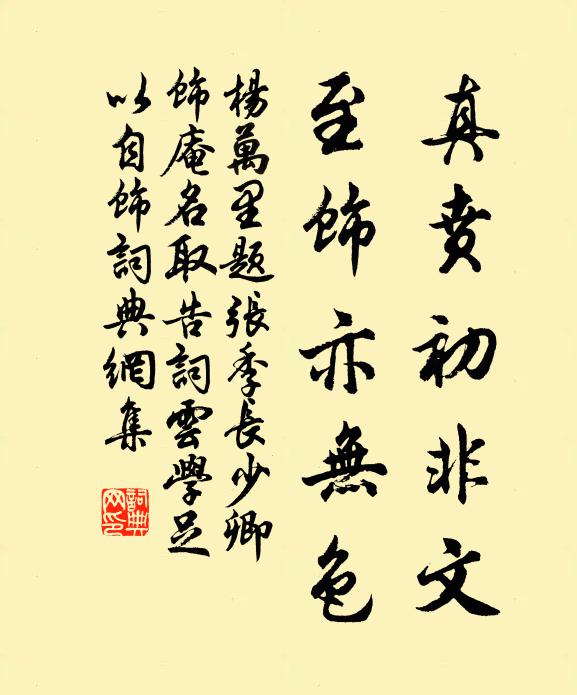 真賁初非文
至飾亦無色
楊萬里題張季長少卿
飾庵名取告詞雲學足
以自飾詞典網集
詞典网印